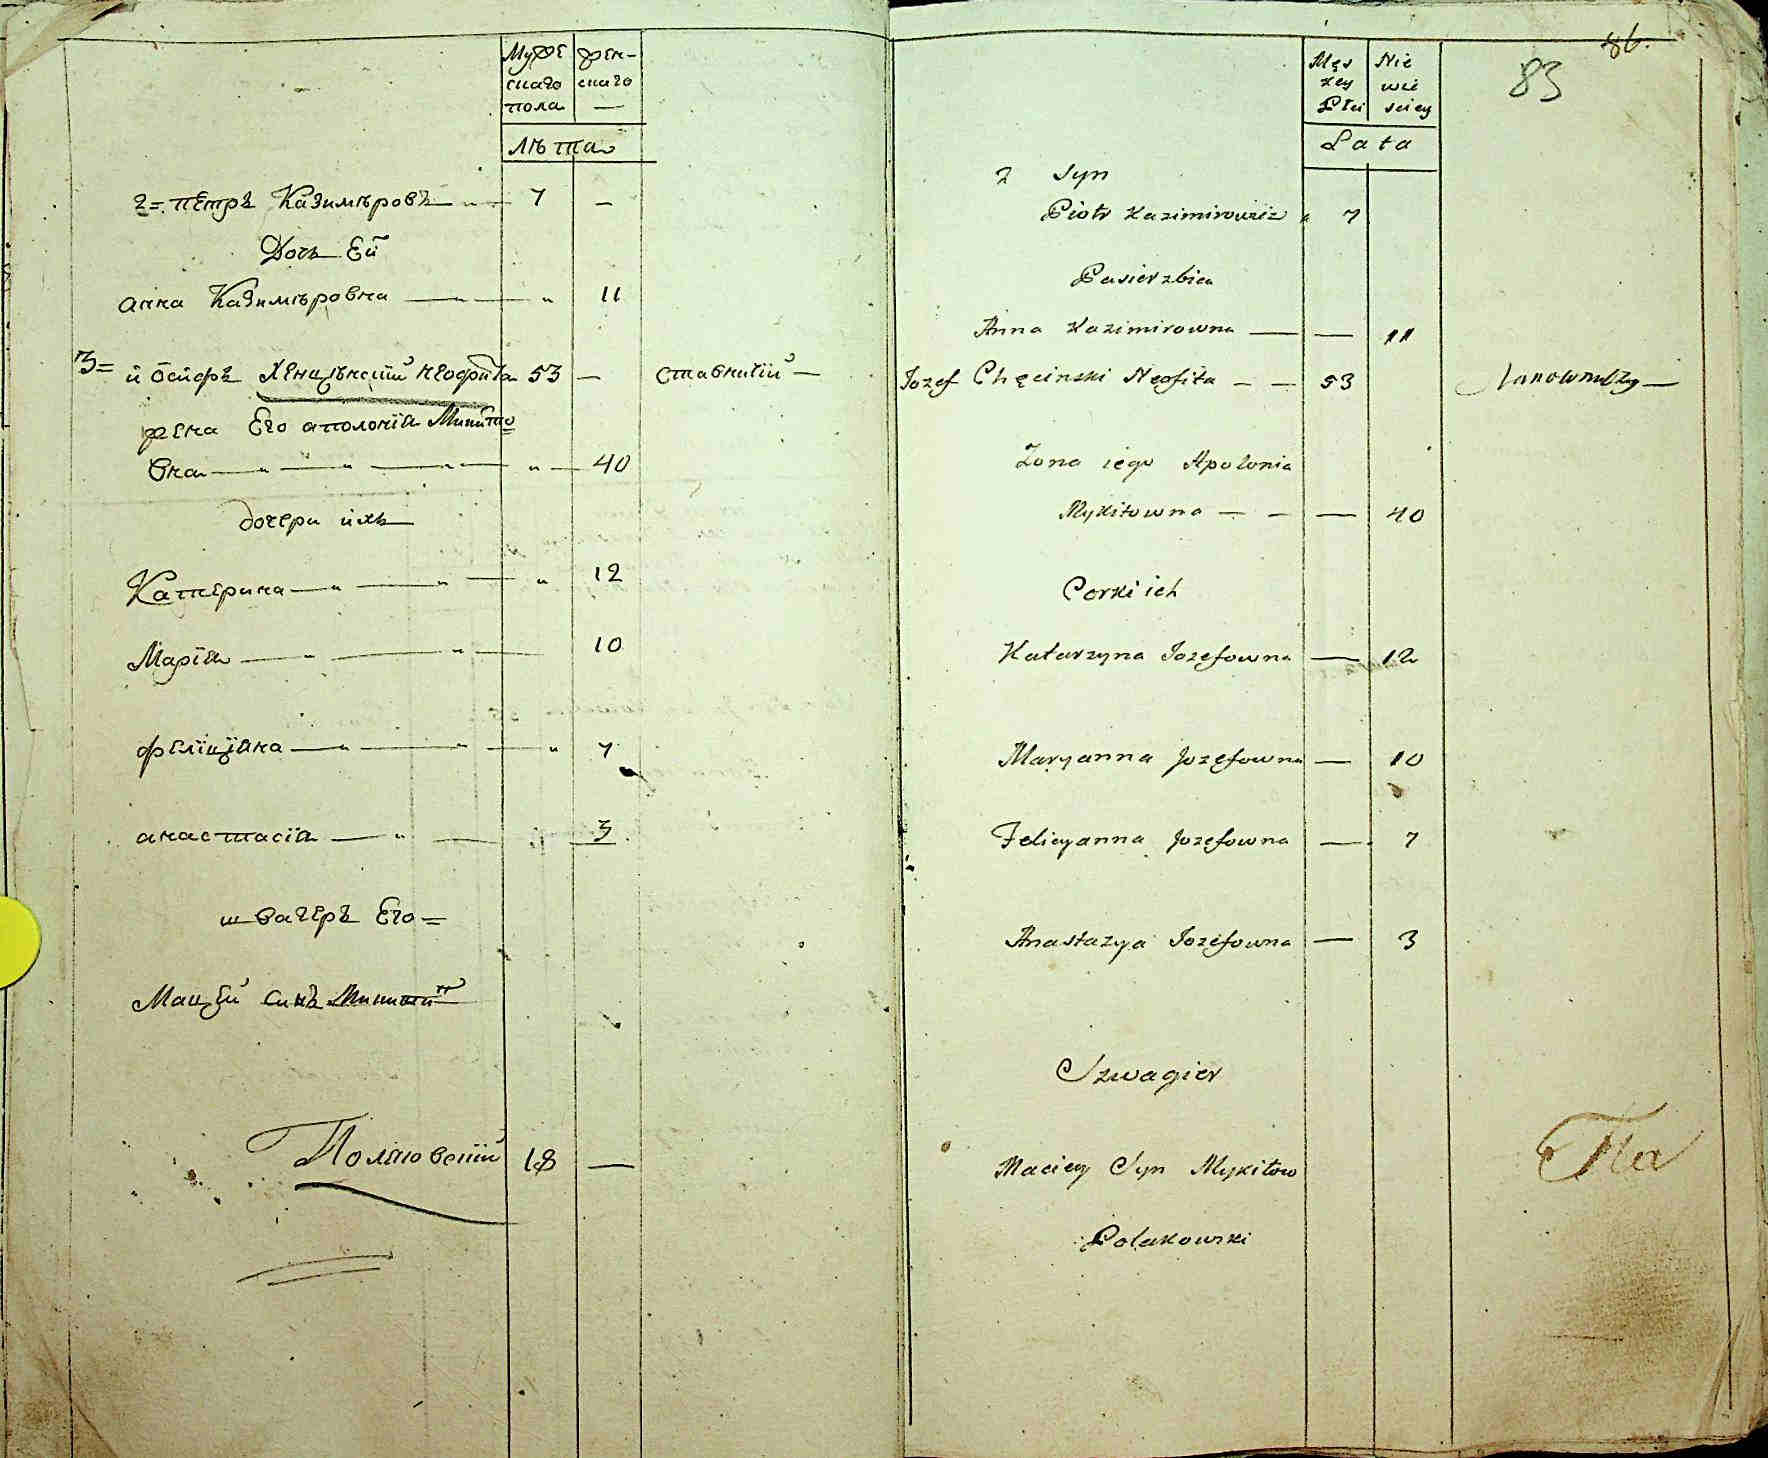 Муже женскаго скаго пола —
лѣта
2= Петръ Казимѣровъ — 7 —
Дочь Ей
Анна Казимѣровна — " — " 11
3= Йосифъ Хенцѣнскій Неофита 53 — ставничій —
жена Его Аполонія Микито=
вна — " — " — " — 40
дочери ихъ
Катерина — " — " — " 12
Марія — " — " — 10
Феліціяна — " — " — " 7
Анастасія — " — 3
швагеръ Его=
Мацѣй Синъ Микити
Поляковскій 18 —
86.
83
Męs Nie
zey wie
Płci sciey
Lata
2 Syn
Piotr Kazimirowicz " 7
Pasierzbica
Anna Kazimirowna — — 11
Jozef Chęcinski Neofita — — 53
Żona iego Apolonia
Mykitowna — — — 40
Corki ich
Katarzyna Jozefowna — 12
Maryanna Jozefowna — 10
Felicyanna Jozefowna — 7
Anastazya Jozefowna — 3
Szwagier
Maciey Syn Mykitow
Polakowski